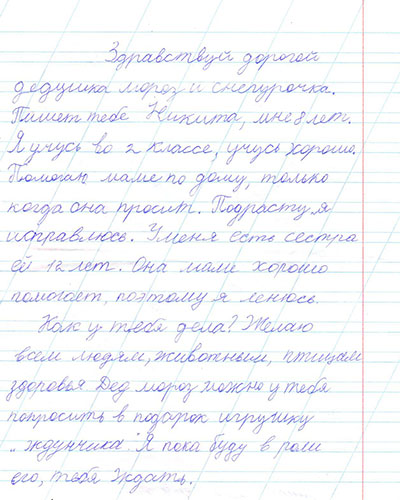 Здравствуй дорогой
дедушка мороз и снегурочка.
Пишет тебе Никита, мне 8 лет.
Я учусь во 2 классе, учусь хорошо.
Помогаю маме по дому, только
когда она просит. Подрасту я
исправлюсь. У меня есть сестра
ей 12 лет. Она маме хорошо
помогает, поэтому я ленюсь.
Как у тебя дела? Желаю
всем людям, животным, птицам
здоровья Дед мороз можно у тебя
попросить в подарок игрушку
"ждунчика". Я пока буду в роли
его, тебя ждать.